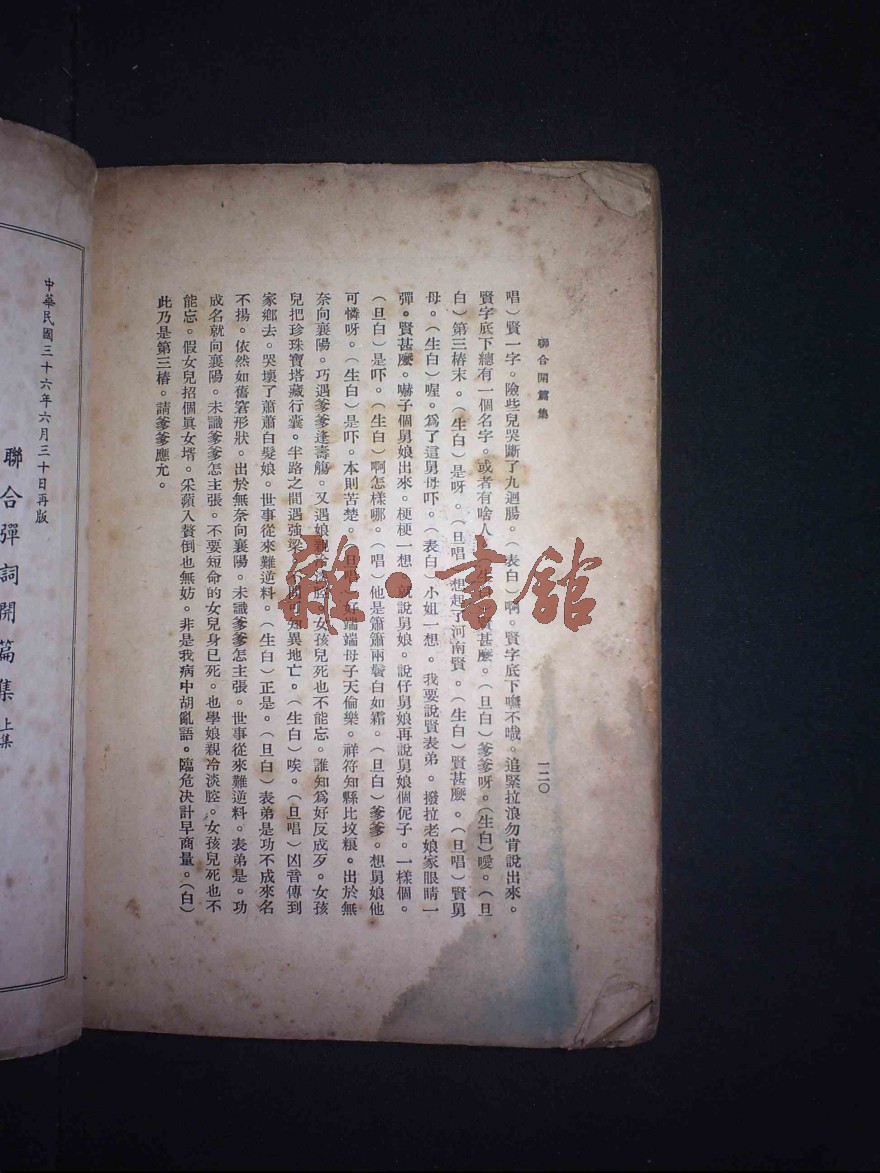 聯合開篇集
一二〇
唱）賢一字。險些兒哭斷了九迴腸。（表白）啊。賢字底下嘸不哦。追緊拉浪勿肯說出來。
賢字底下總有一個名字。或者有啥人 生白 賢甚麼。（旦白）爹爹呀。（生白）噯。（旦
白）第三樁末。（生白）是呀。（旦唱 想起了河南賢。（生白）賢甚麼。（旦唱）賢舅
母。（生白）喔。爲了這舅母吓。（表白）小姐一想。我要說賢表弟。撥拉老娘家眼睛一
彈。賢甚麼。嚇子個舅娘出來。梗梗一想 就說舅娘。說仔舅娘再說舅娘個伲子。一樣個。
（旦白）是吓。（生白）啊怎樣哪。（唱）他是簫簫兩鬢白如霜。（旦白）爹爹。想舅娘他
可憐呀。（生白）是吓。本則苦楚。 旦 好端端母子天倫樂。祥符知縣比坟糧。出於無
奈向襄陽。巧遇爹爹逢壽觴。又遇娘親冷淡腔。女孩兒死也不能忘。誰知爲好反成歹。女孩
兒把珍珠寶塔藏行囊。半路之間遇強梁 不聞可知異地亡。（生白）唉。（旦唱）凶音傳到
家鄉去。哭壞了蕭蕭白髮娘。世事從來難逆料。（生白）正是。（旦白）表弟是功不成來名
不揚。依然如舊窘形狀。出於無奈向襄陽。未識爹爹怎主張。世事從來難逆料。表弟是。功
成名就向襄陽。未識爹爹怎主張。不要短命的女兒身已死。也學娘親冷淡腔。女孩兒死也不
能忘。假女兒招個眞女壻。采蘋入贅倒也無妨。非是我病中胡亂語。臨危決計早商量。（白）
此乃是第三樁。請爹爹應允。
中華民國三十六年六月三十日再版
聯合彈詞開篇集 上集
雜·書館